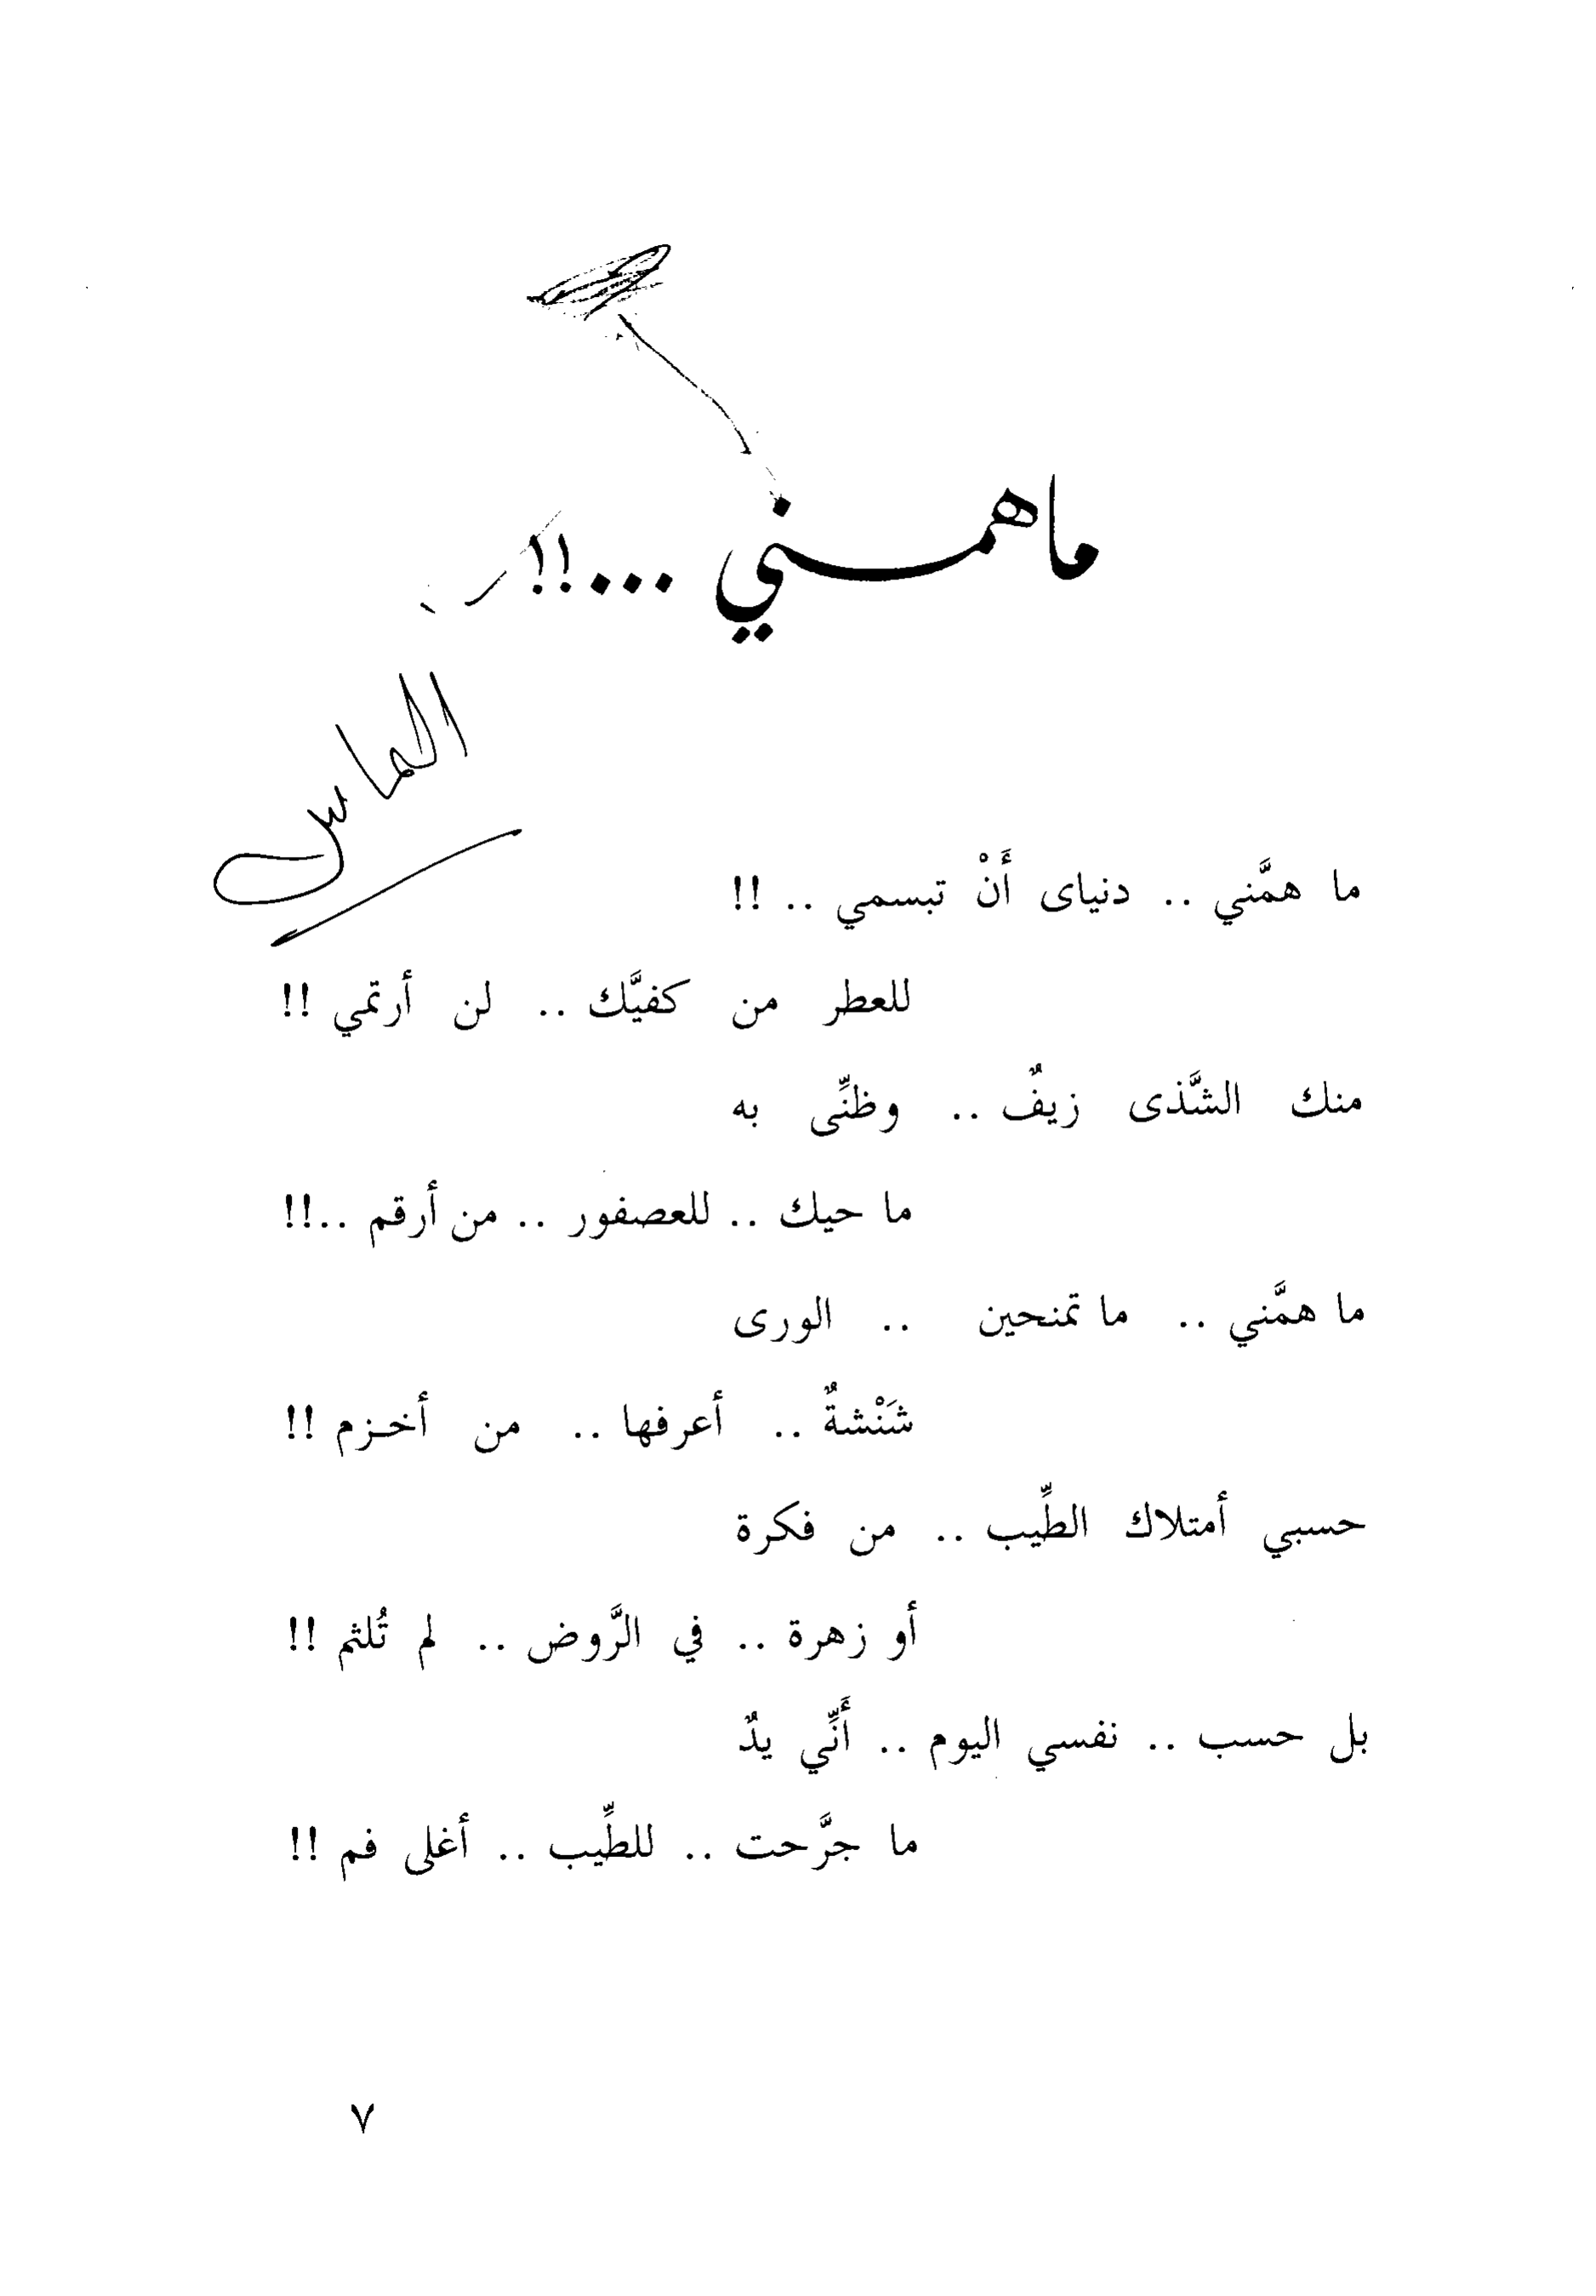 ماهمني ...!!
الماس
ما همَّني .. دنياى أَنْ تبسمي .. !!
للعطر من كفيَّك .. لن أرتمي !!
منك الشَّذى زيفٌ .. وظنِّى به
ما حيك .. للعصفور .. من أرقم ..!!
ما همَّني .. ما تمنحين .. الورى
شَنْشةٌ .. أعرفها .. من أخـزم !!
حسبي أمتلاك الطِّيب .. من فكرة
أو زهرة .. في الرَّوض .. لم تُلثم !!
بل حسب .. نفسي اليوم .. أَنِّي يدٌ
ما جرَّحت .. للطِّيب .. أغلى فم !!
٧